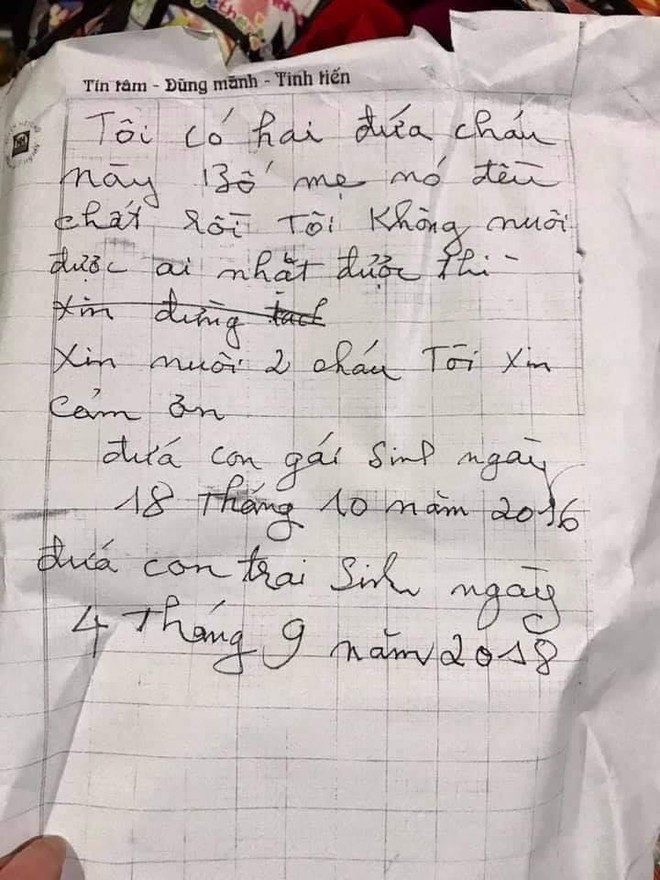 Tín tâm - Dũng mãnh - Tinh tiến
Tôi có hai đứa cháu
này Bố mẹ nó đều
chất rồi Tôi không nuôi
được ai nhặt được thì
xin đừng tach
xin nuôi 2 cháu Tôi xin
cảm ơn
đứa con gái sinh ngày
18 Tháng 10 năm 2016
đứa con trai sinh ngày
4 Tháng 9 năm 2018